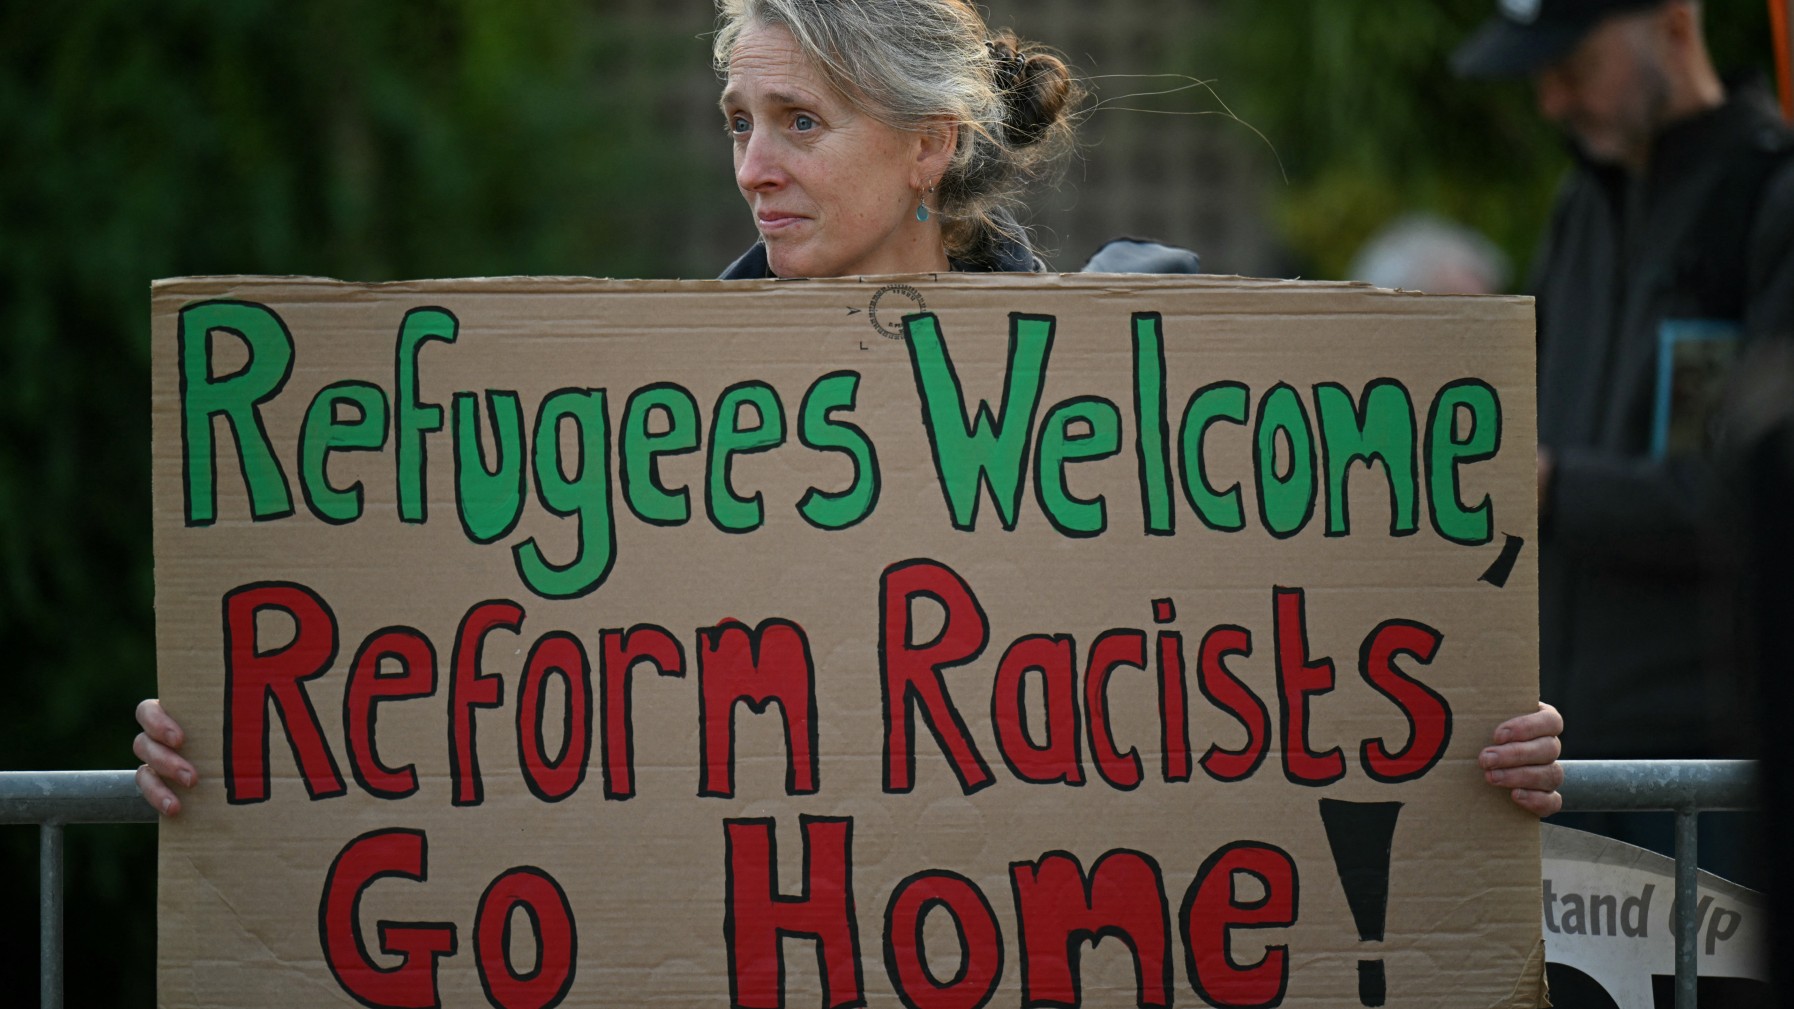 Refugees Welcome,
Reform Racists
Go Home!
tand Up